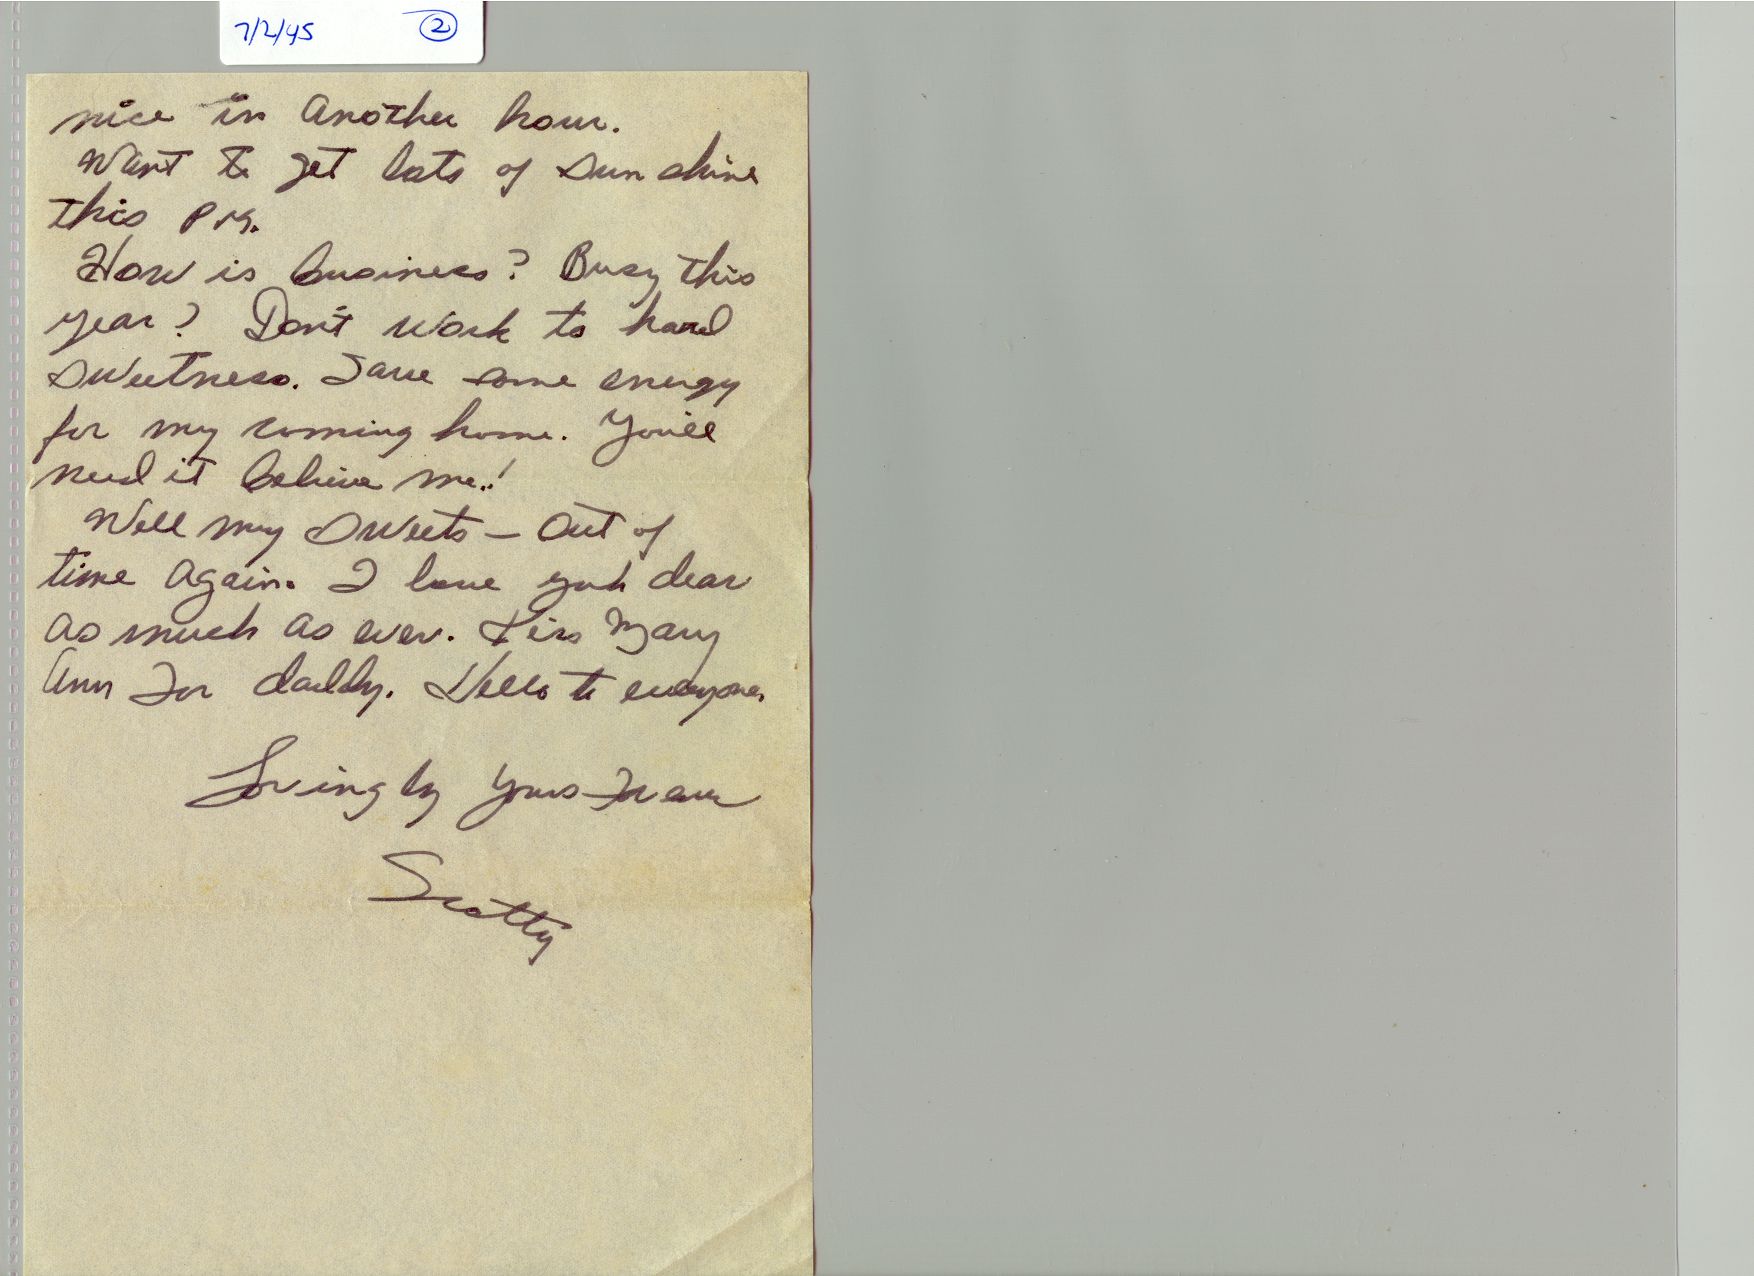 7/2/45 2
nice in another hour.
Want to get lots of sun shine
this P.M.
How is business? Busy this
year? Don't work to hard
sweetness. Save some energy
for my coming home. You'll
need it believe me!
Well my sweets - Out of
time again. I love yuh dear
as much as ever. Kiss Mary
Ann for daddy. Hello to everyone.
Lovingly Yours Forever
Scotty